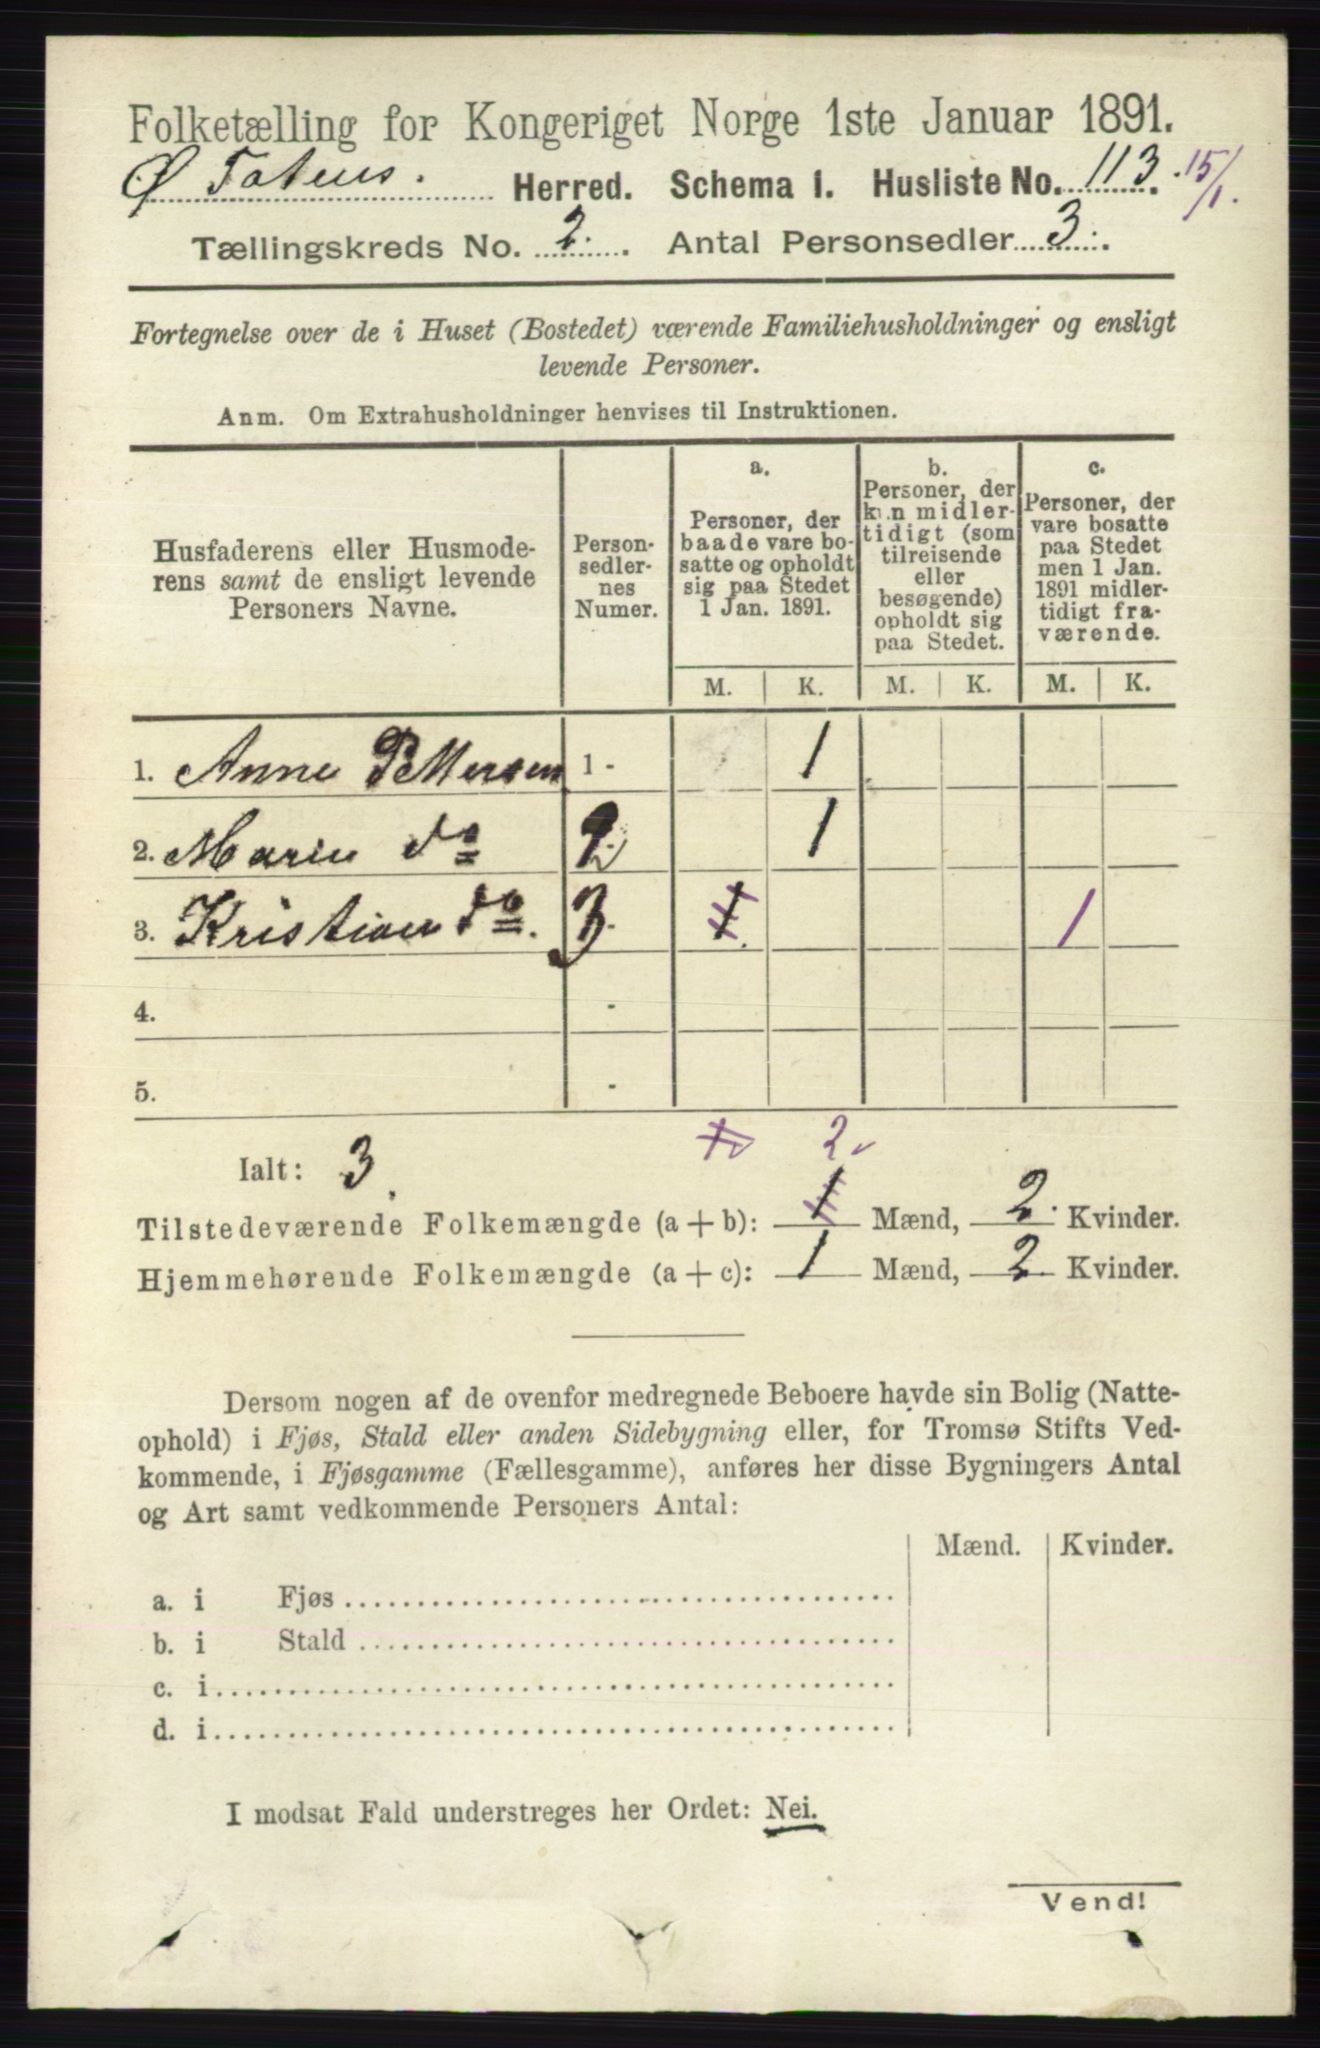 Folketælling for Kongeriget Norge 1ste Januar 1891.
Ø Totens. Herred. Schema 1. Husliste No. 113. 15/1.
Tællingskreds No. 2. Antal Personsedler 3.
Fortegnelse over de i Huset (Bostedet) værende Familiehusholdninger og ensligt
levende Personer.
Anm. Om Extrahusholdninger henvises til Instruktionen.
Husfaderens eller Husmode-
rens samt de ensligt levende
Personers Navne.
Person-
sedler-
nes
Numer.
a.
Personer, der
baade vare bo-
satte og opholdt
sig paa Stedet
1 Jan. 1891.
b.
Personer, der
kun midler-
tidigt (som
tilreisende
eller
besøgende)
opholdt sig
paa Stedet.
c.
Personer, der
vare bosatte
paa Stedet
men 1 Jan.
1891 midler-
tidigt fra-
værende.
M. K. M. K. M. K.
1. Anne Pettersen 1 - 1
2. Marie do 2 1
3. Kristian do. 3 1 1
4. -
5. -
1 2
Ialt: 3.
Tilstedeværende Folkemængde (a + b): 1 Mænd, 2. Kvinder.
Hjemmehørende Folkemængde (a + c): 1 Mænd, 2 Kvinder.
Dersom nogen af de ovenfor medregnede Beboere havde sin Bolig (Natte-
ophold) i Fjøs, Stald eller anden Sidebygning eller, for Tromsø Stifts Ved-
kommende, i Fjøsgamme (Fællesgamme), anføres her disse Bygningers Antal
og Art samt vedkommende Personers Antal:
Mænd. Kvinder.
a. i Fjøs
b. i Stald
c. i
d. i
I modsat Fald understreges her Ordet: Nei.
Vend!